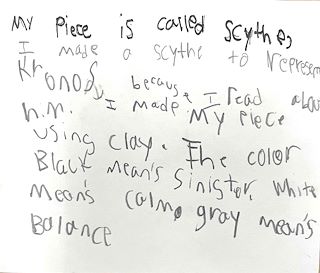 My Piece is called Scythe,
I made a scythe to represen
Kronos, because I read abou
him. I made My Piece
using clay. The color
Black mean's sinister, white
mean's calm, gray mean's
Balance